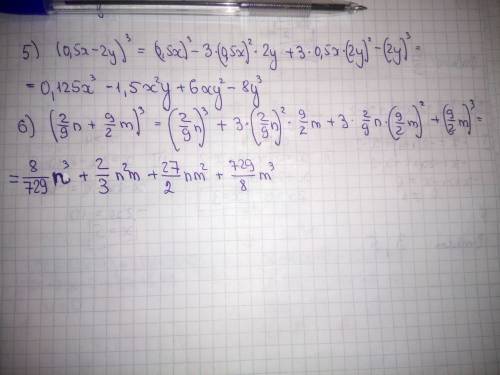 5) (0,5x-2y)³ = (0,5x)³ - 3·(0,5x)²·2y + 3·0,5x·(2y)² - (2y)³ =
= 0,125x³ - 1,5x²y + 6xy² - 8y³
6) (2/9 n + 9/2 m)³ = (2/9 n)³ + 3·(2/9 n)²·9/2 m + 3·2/9 n·(9/2 m)² + (9/2 m)³ =
= 8/729 n³ + 2/3 n²m + 27/2 nm² + 729/8 m³